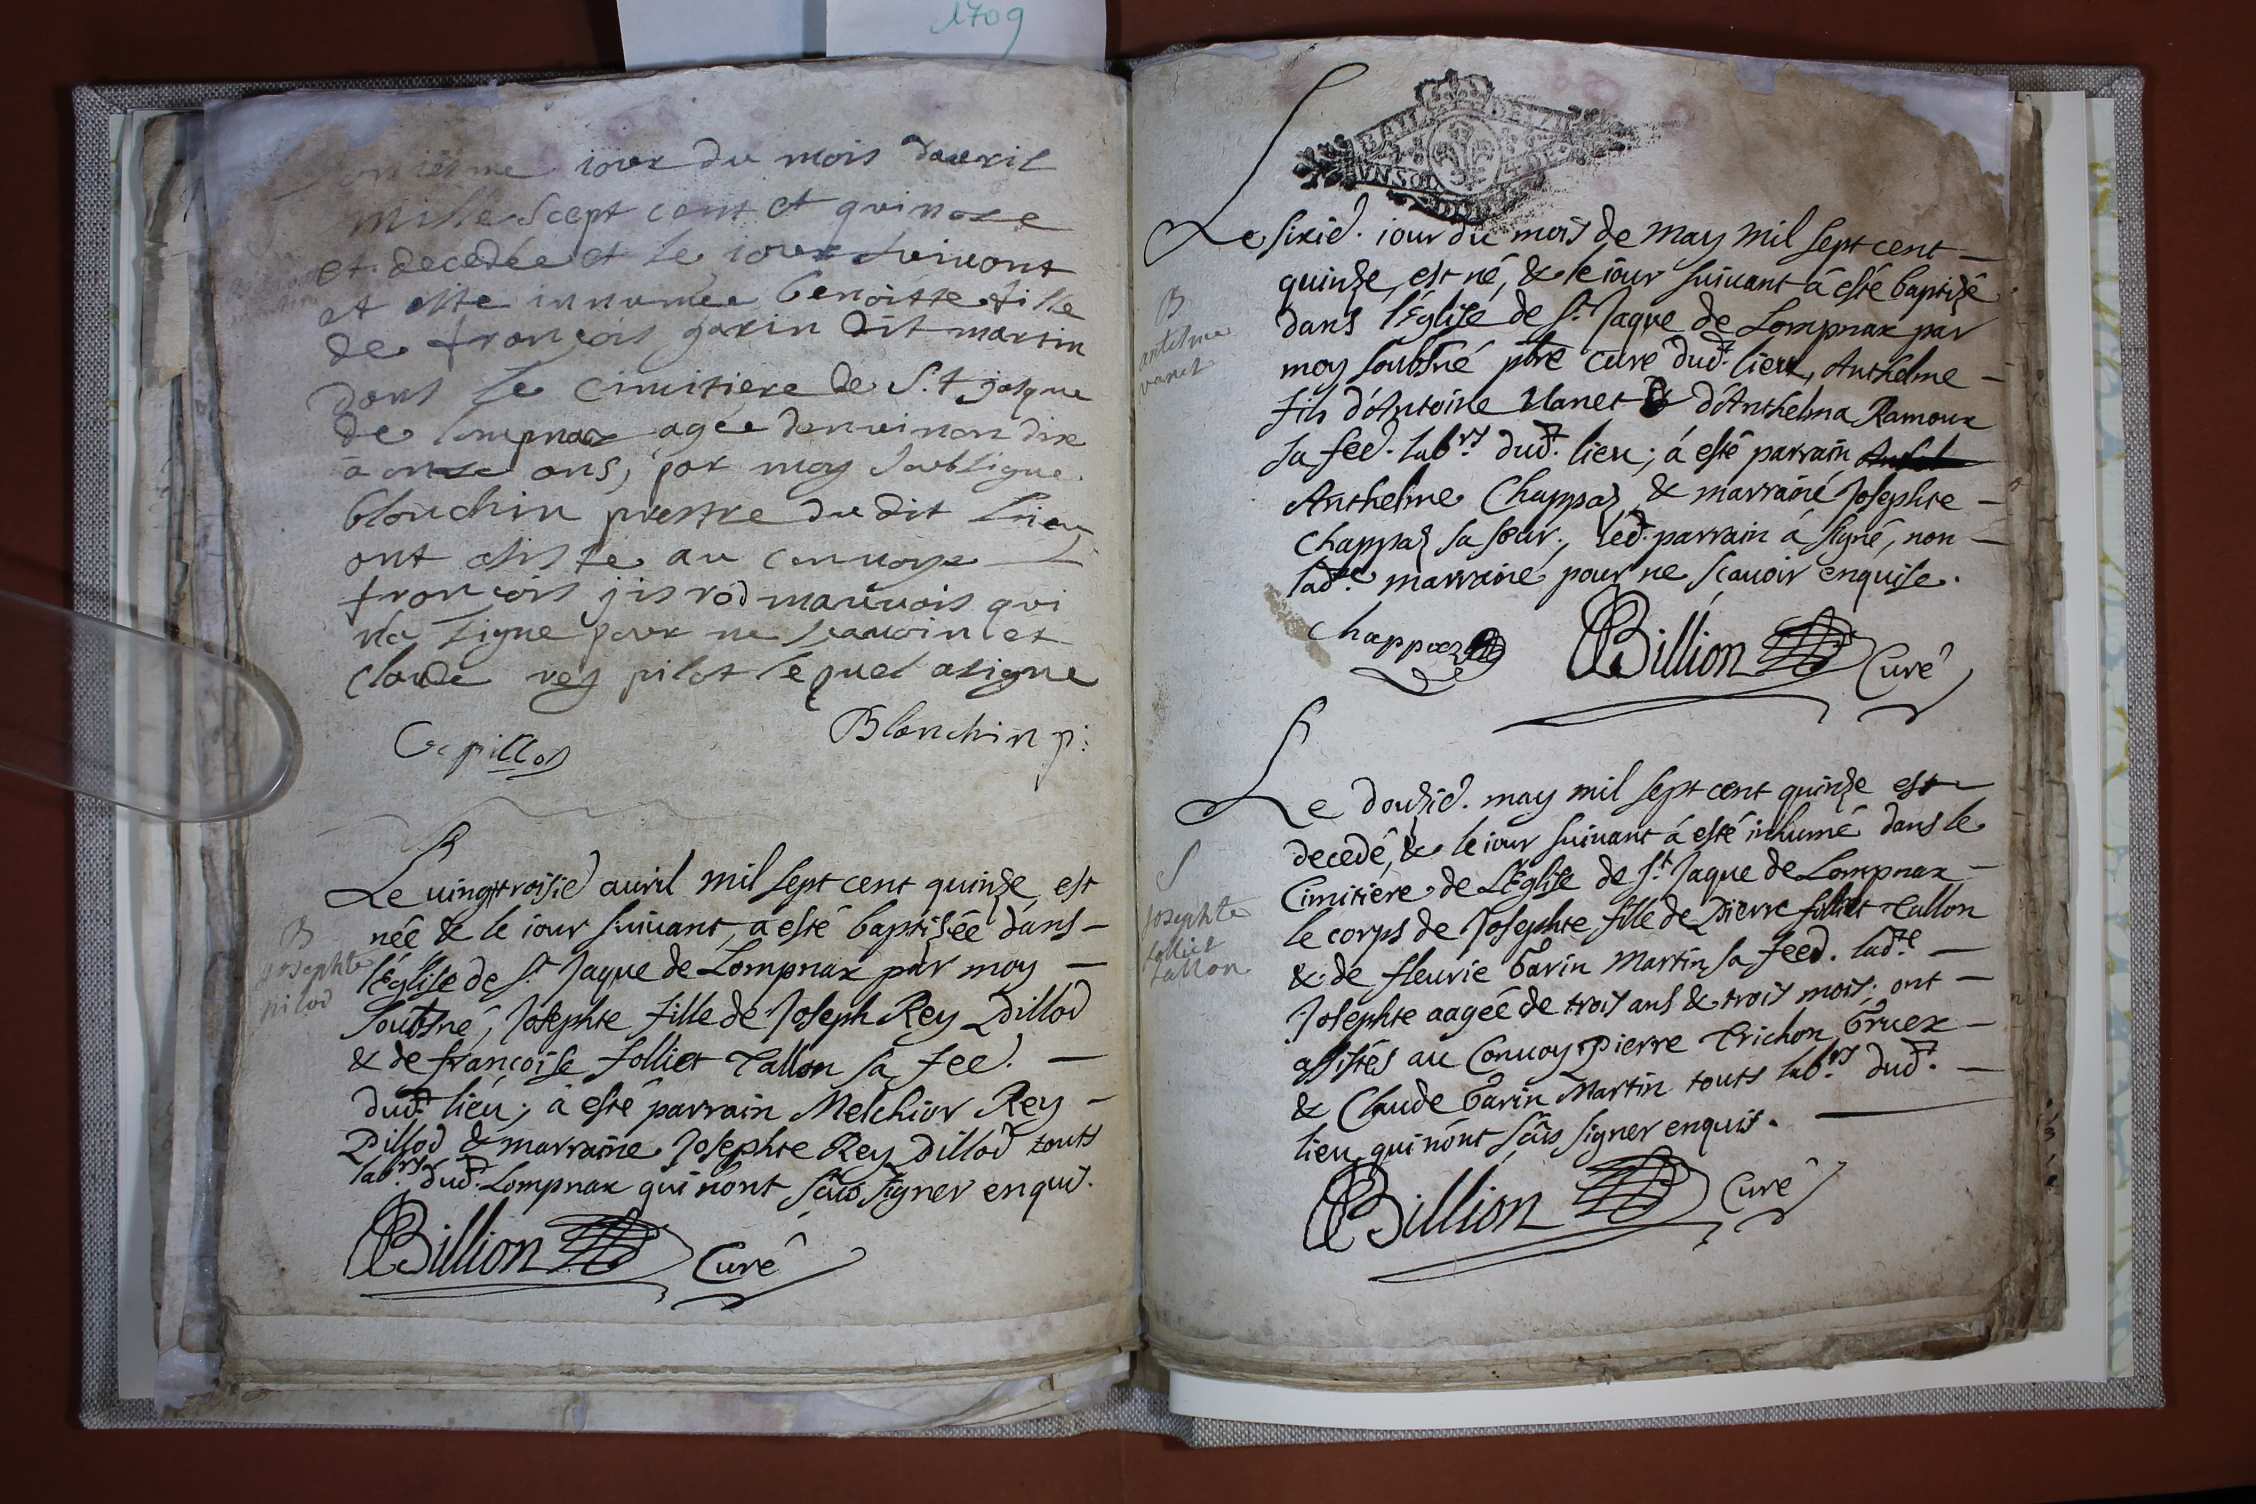 1709
onziesme iour du mois dauril
mille scept cent et quinose
et decedée et le iour suivont
et este innumée benoitte fille
de françois garin dit martin
dons le cimitiere de S.t jasque
de lompnax agée denuiron dix
a onze ons, par moy soubsigne
blonchin prestre du dit lieu
ont asiste au conuoys
françois rod mauuois qui
na signe pour ne scauoir et
claude rey pilot lequel asigne
Blonchin p:
pillod
Le uingttroisie. auril mil sept cent quinze est
née & le iour suiuant, a esté baptisée dans
l'Eglise de St. Jaque de Lompnax par moy
soubsné, Josephte fille de Joseph Rey Pillod
& de françoise folliet Tallon sa fee.
dud.t lieu; à esté parrain Melchior Rey
Pillod & marraine Josephte Rey Pillod touts
lab.rs dud.t Lompnax qui n'ont sçus signer enquis.
Billion Curé
B
josephte
pilod
BAIL DE
VN SOL 4 DE
Le sixie. iour du mois de may mil sept cent
quinze, est né, & le iour suiuant à esté baptizé
dans l'Eglise de St. Jaque de Lompnax par
moy soubsné pbre curé dud.t lieu, Anthelme
fils d'Antoine Vanet & d'Anthelma Ramoux
sa fee. lab.rs dud.t lieu; à esté parrain
Anthelme Chappaz & marraine Josephte
Chappaz sa sœur, led. parrain à signé, non
lad.te marraine pour ne sçauoir enquise.
Chappaz Billion Curé
B
antelme
vanet
Le douzie. may mil sept cent quinze est
decedé, & le iour suiuant à esté inhumé dans le
Cimitiere de L'Eglise de St. Jaque de Lompnax
le corps de Josephte fille de Pierre folliet Tallon
& de fleurie Garin Martin sa feed. lad.te
Josephte aagée de trois ans & trois mois; ont
assistés au Conuoy Pierre Trichon Gruex
& Claude Garin Martin touts lab.rs dud.t
lieu qui n'ont sçus signer enquis.
Billion Curé
S
josephte
folliet
tallon